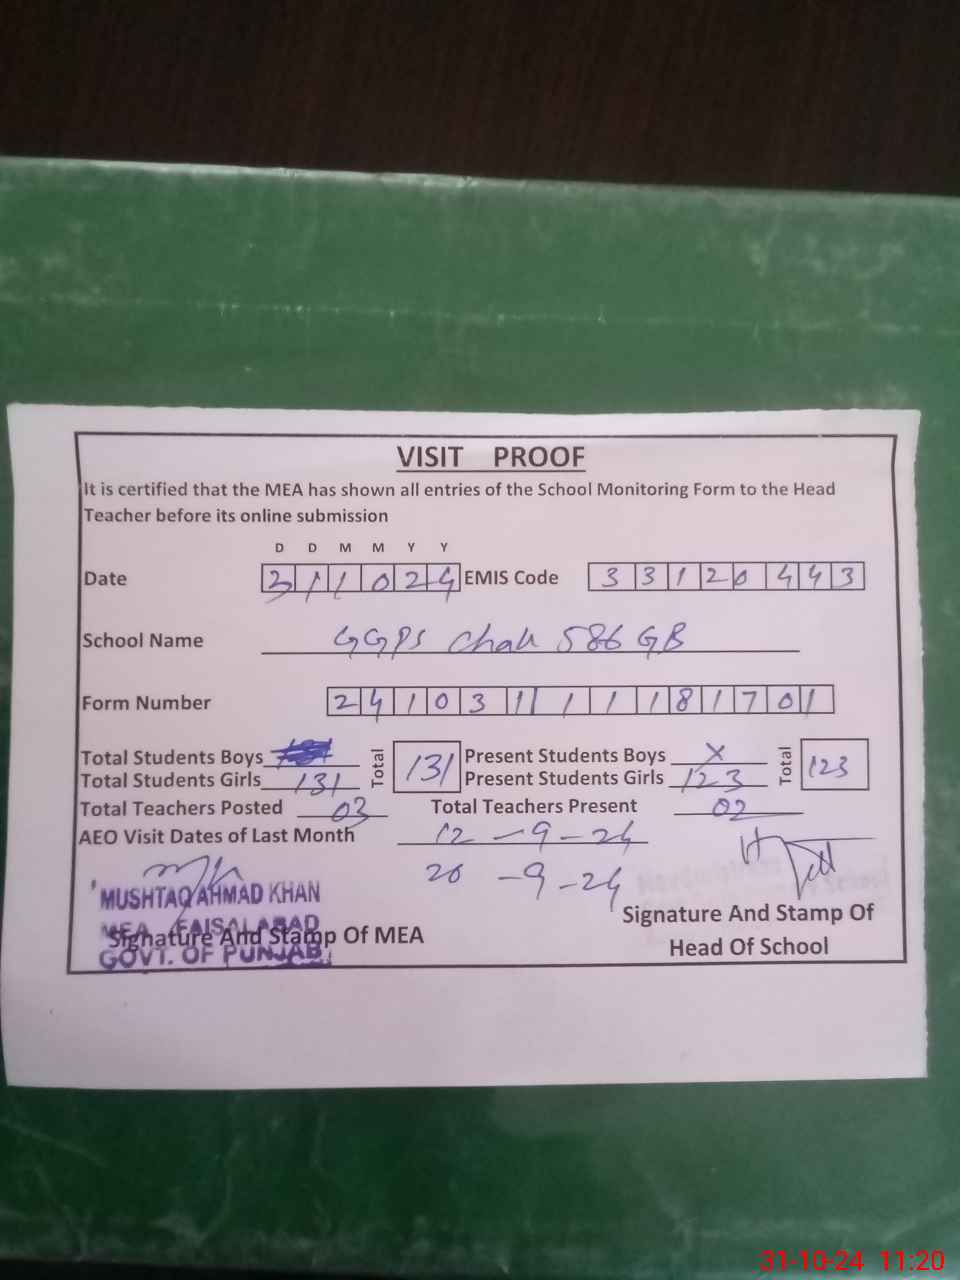 VISIT PROOF
It is certified that the MEA has shown all entries of the School Monitoring Form to the Head
Teacher before its online submission
D D M M Y Y
Date 311024 EMIS Code 33120443
School Name GGPS Chak 586 GB
Form Number 241031111181701
Total Students Boys Total 131 Present Students Boys X Total 123
Total Students Girls 131 Present Students Girls 123
Total Teachers Posted 03 Total Teachers Present 02
AEO Visit Dates of Last Month 12-9-24
20-9-24
MUSHTAQ AHMAD KHAN
MEA FAISALABAD
GOVT. OF PUNJAB
Signature And Stamp Of MEA
Signature And Stamp Of
Head Of School
31-10-24 11:20